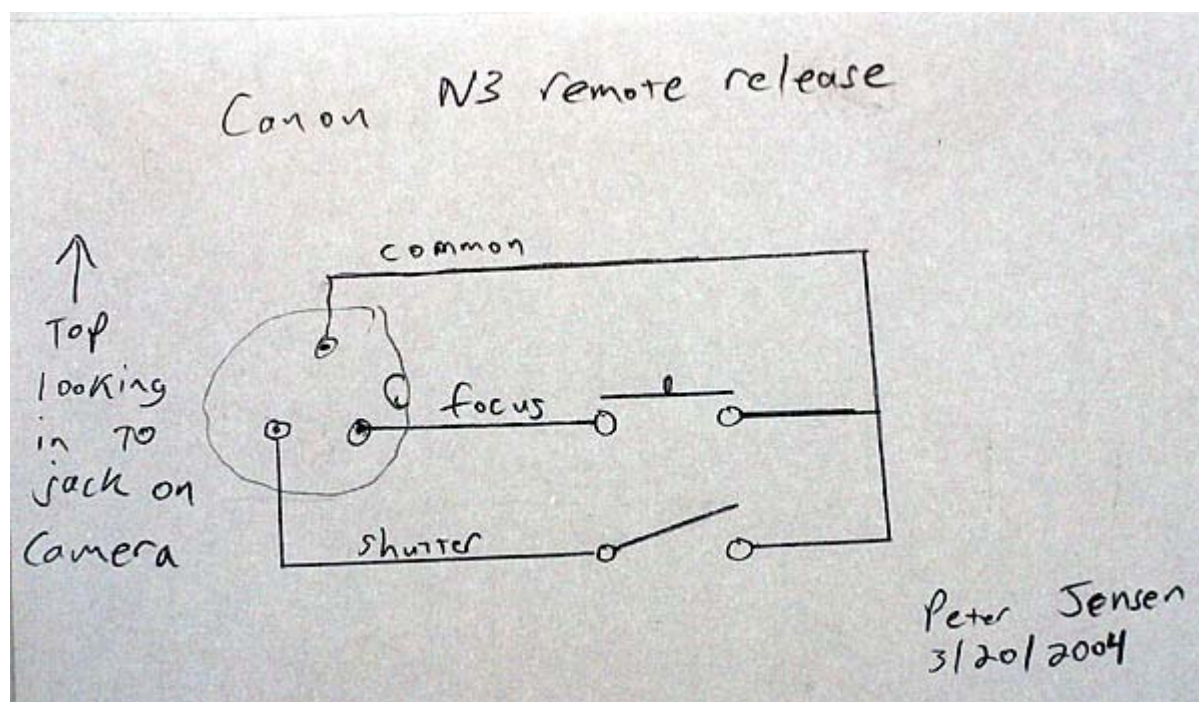 Canon N3 remote release
common
↑
Top
looking
in TO
jack on
Camera
focus
shutter
Peter Jensen
3/20/2004